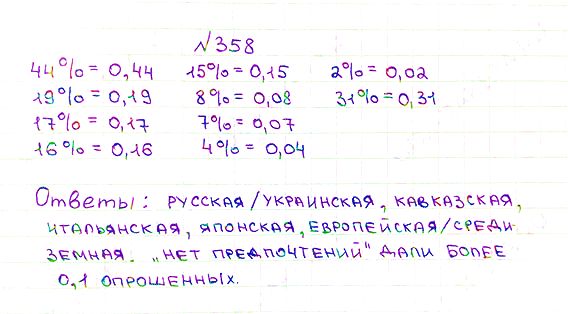 №358
44% = 0,44 15% = 0,15 2% = 0,02
19% = 0,19 8% = 0,08 31% = 0,31
17% = 0,17 7% = 0,07
16% = 0,16 4% = 0,04
Ответы: русская/украинская, кавказская,
итальянская, японская, европейская/среди-
земная. „Нет предпочтений" дали более
0,1 опрошенных.